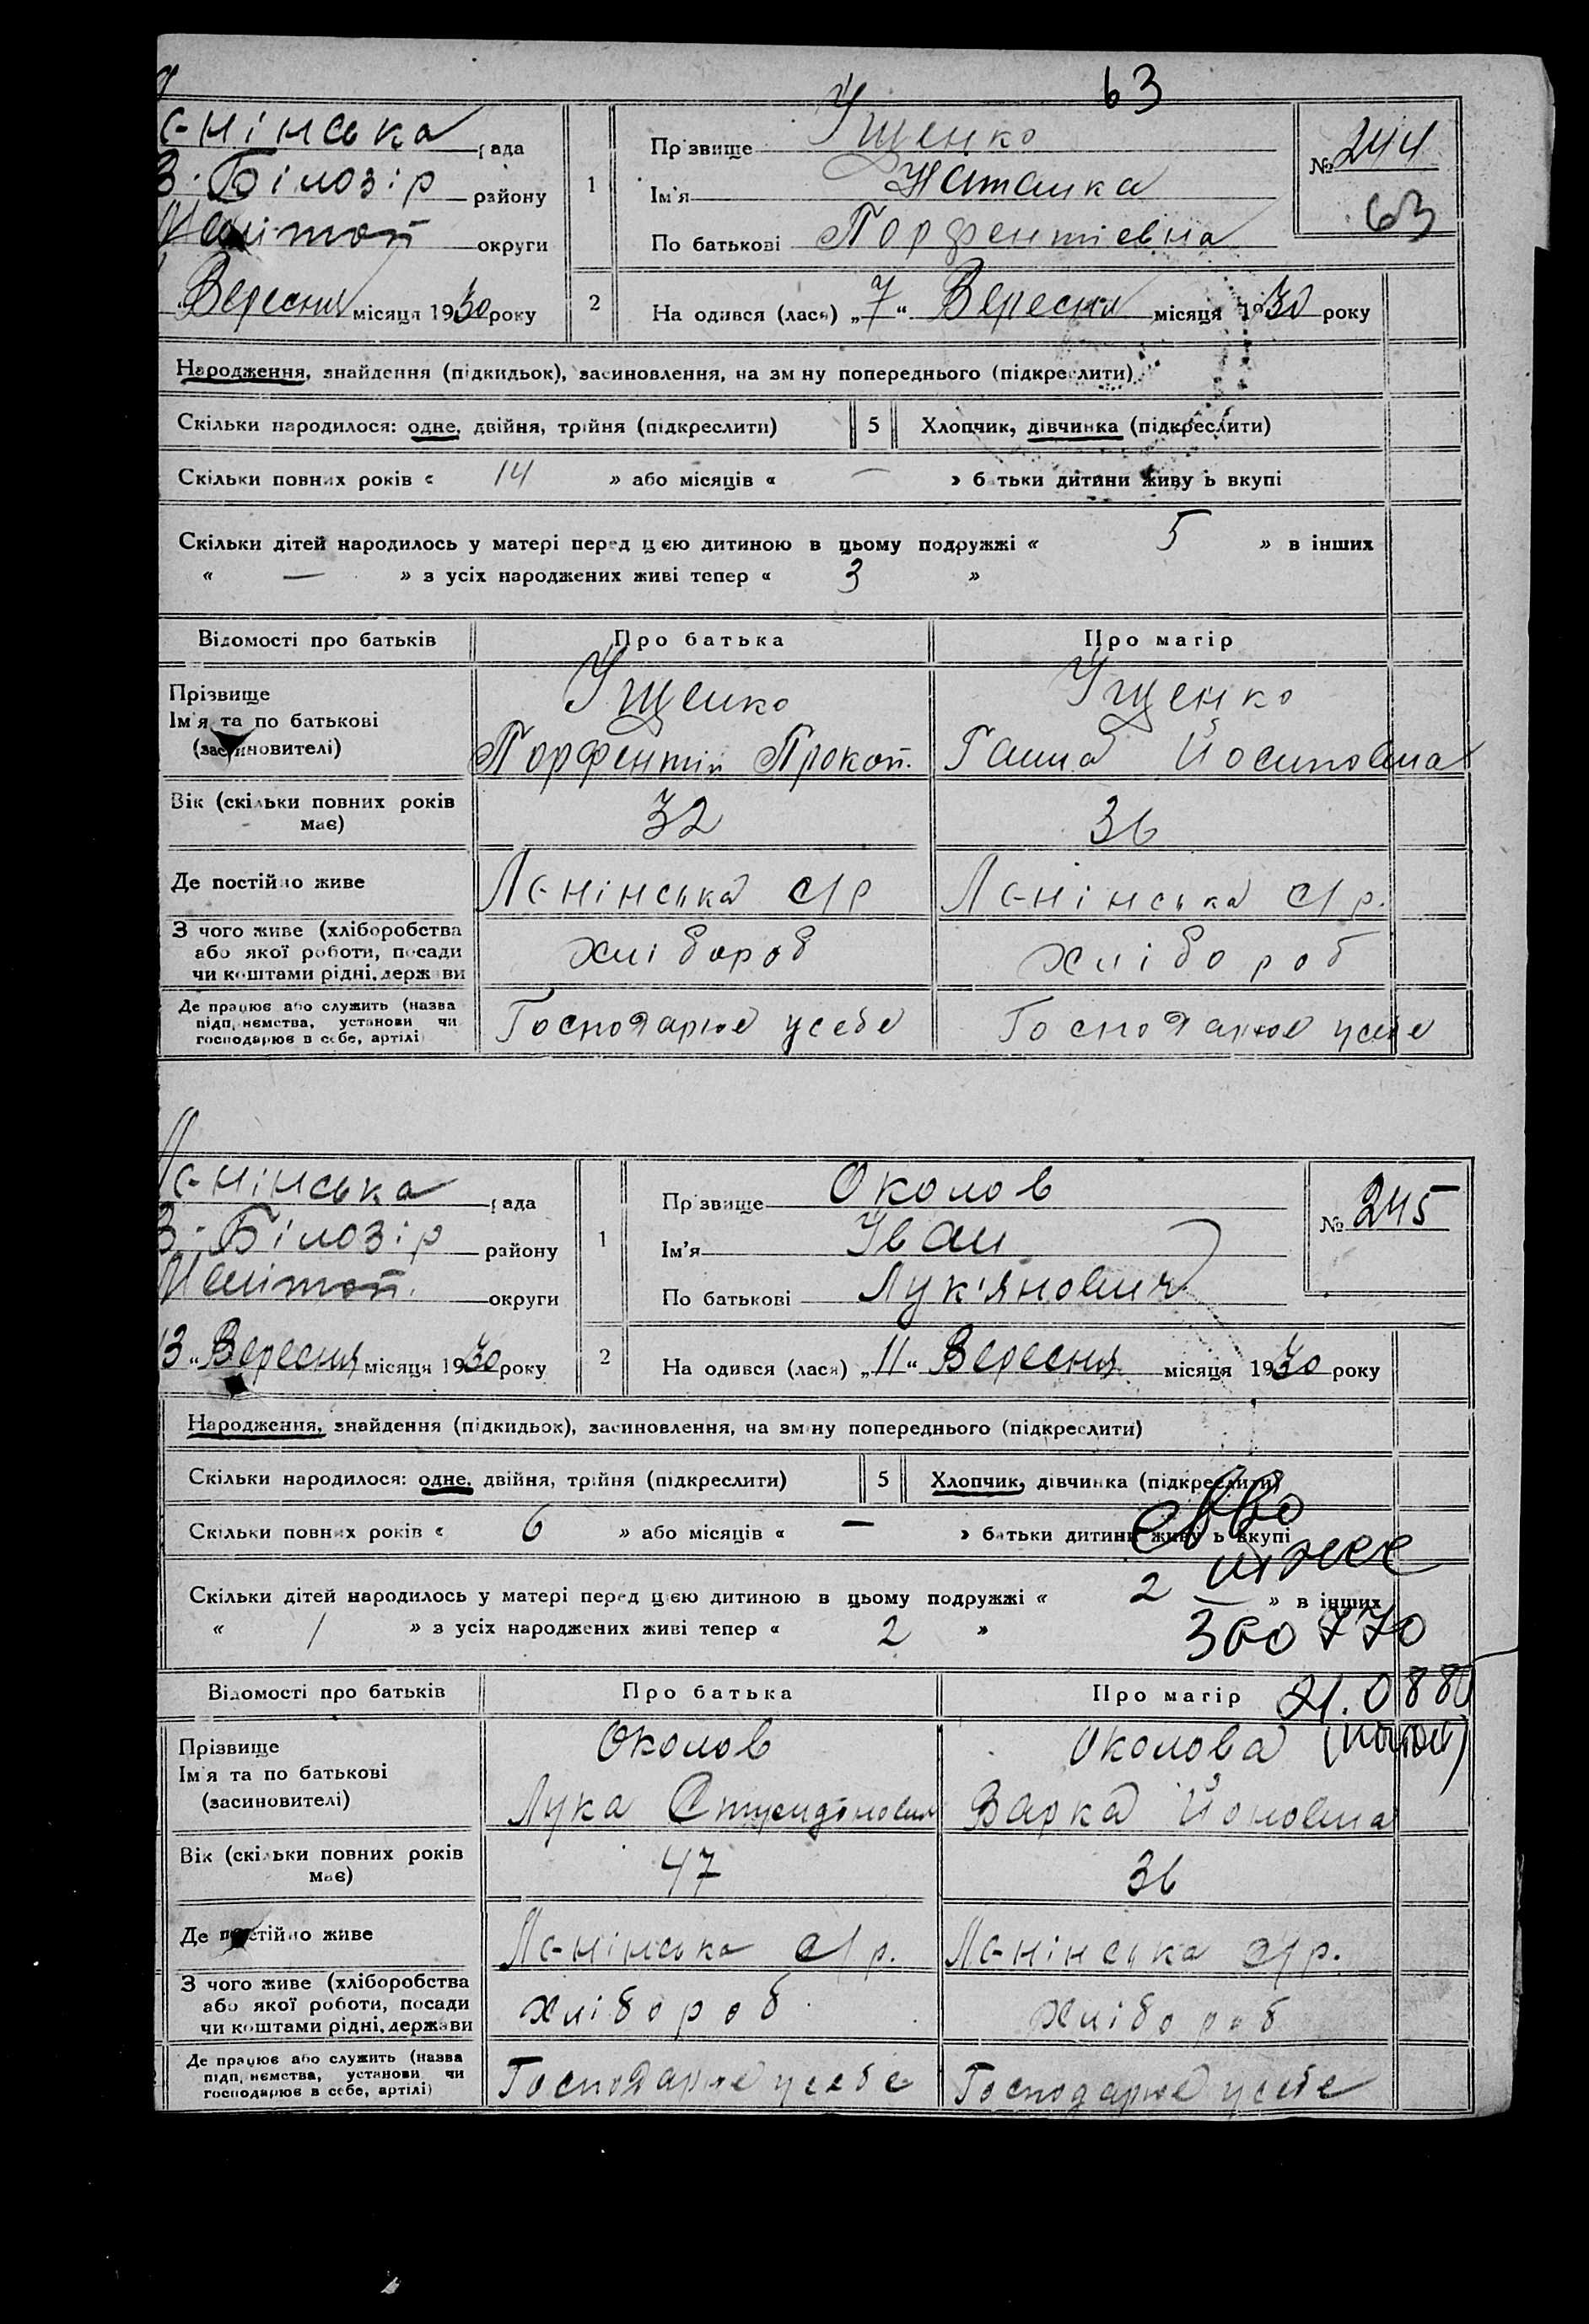 63
Лєнінська рада
В-Білозір району
Мелітоп округи
Вересня місяця 1930 року
1
Прізвище Ущенко
Ім'я Наталка
По батькові Порфентіевна
№ 244
63
2
На одився (лася) „7“ Вересня місяця 1930 року
Народження, знайдення (підкидьок), засиновлення, на зміну попереднього (підкреслити)
Скільки народилося: одне, двійня, трійня (підкреслити) 5 Хлопчик, дівчинка (підкреслити)
Скільки повних років « 14 » або місяців « — » батьки дитини живуть вкупі
Скільки дітей народилось у матері перед цією дитиною в цьому подружжі « 5 » в інших
« — » з усіх народжених живі тепер « 3 »
Відомості про батьків Про батька Про матір
Прізвище
Ім'я та по батькові
(засиновителі)
Ущенко
Порфентій Прокоп.
Ущенко
Ганна Йосиповна
Вік (скільки повних років
має)
32
36
Де постійно живе Лєнінська с/р Лєнінська с/р.
З чого живе (хліборобства
або якої роботи, посади
чи коштами рідні, держави
хлібороб
хлібороб
Де працює або служить (назва
підприємства, установи чи
господарює в себе, артілі)
Господарює усебе
Господарює усебе
Лєнінська рада
В-Білозір району
Мелітоп. округи
13 „ Вересня місяця 1930 року
1
Прізвище Околов
Ім'я Іван
По батькові Лук'янович
№ 245
2
На одився (лася) „11“ Вересня місяця 1930 року
Народження, знайдення (підкидьок), засиновлення, на зміну попереднього (підкреслити)
Скільки народилося: одне, двійня, трійня (підкреслити) 5 Хлопчик, дівчинка (підкреслити)
Скільки повних років « 6 » або місяців « — » батьки дитини живуть вкупі
Скільки дітей народилось у матері перед цією дитиною в цьому подружжі « 2 » в інших
« 1 » з усіх народжених живі тепер « 2 »
360770
21.0880
Відомості про батьків Про батька Про матір
Прізвище
Ім'я та по батькові
(засиновителі)
Околов
Лука
Околова
Варка Йоновна
Вік (скільки повних років
має)
47
36
Де постійно живе Лєнінська с/р. Лєнінська с/р.
З чого живе (хліборобства
або якої роботи, посади
чи коштами рідні, держави
хлібороб
хлібороб
Де працює або служить (назва
підприємства, установи чи
господарює в себе, артілі)
Господарює усебе
Господарює усебе